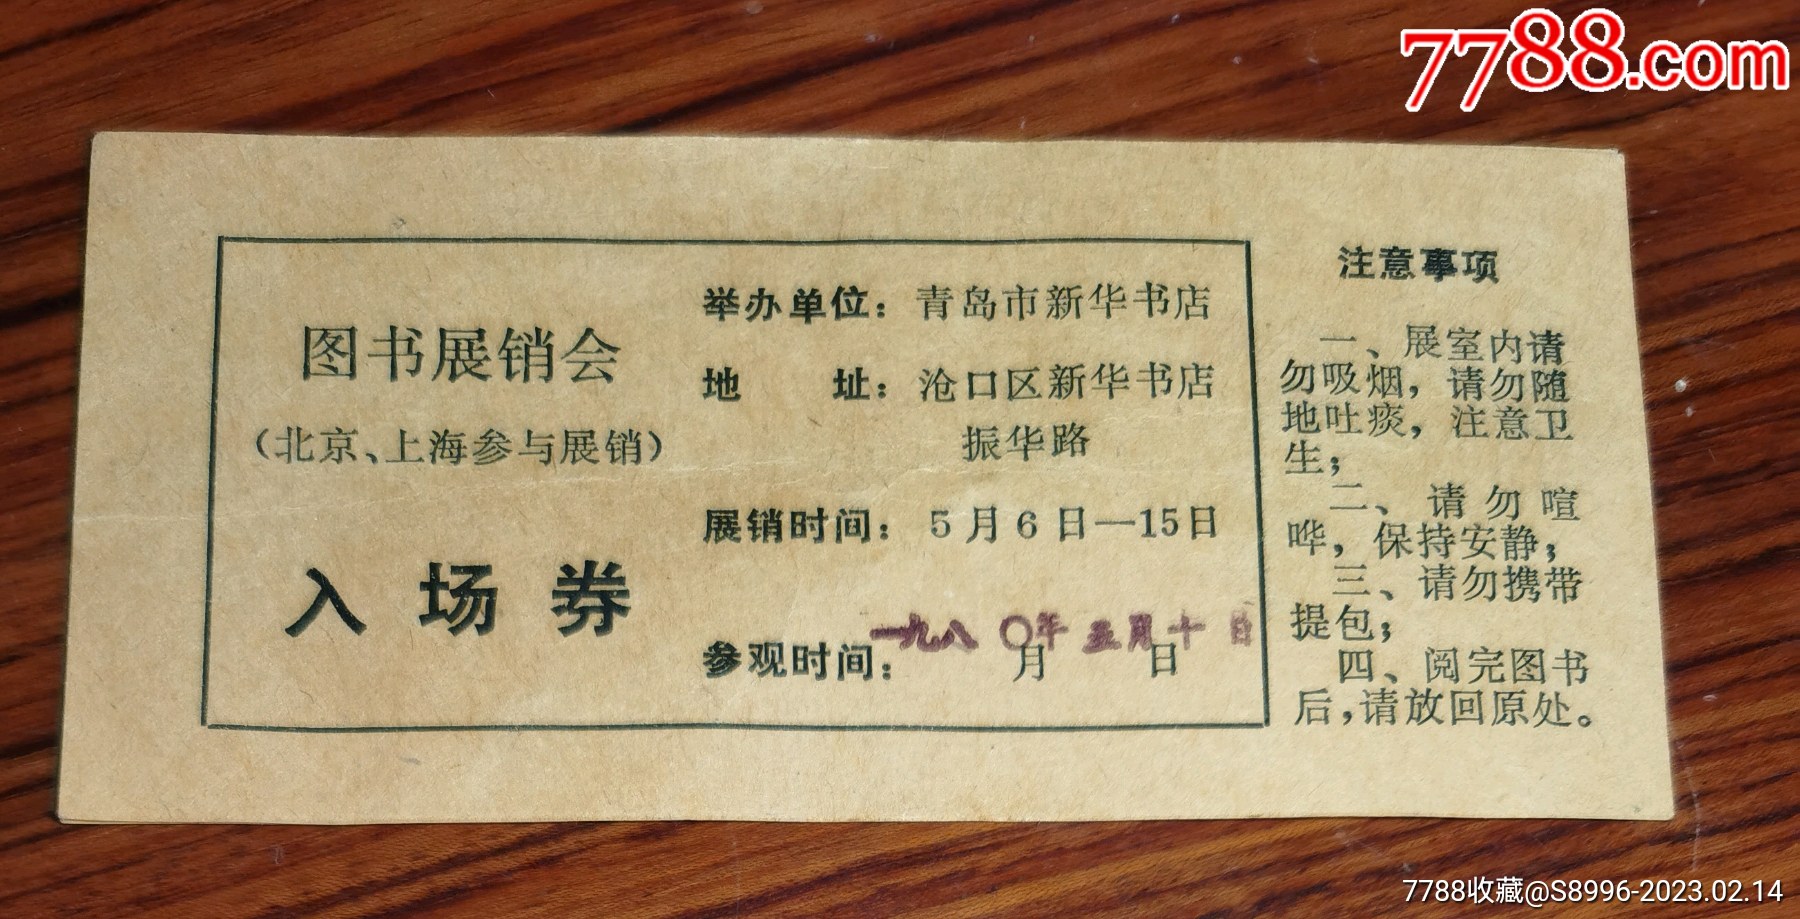 7788.com
图书展销会
（北京、上海参与展销）
入场券
举办单位：青岛市新华书店
地　　址：沧口区新华书店
振华路
展销时间：5月6日—15日
一九八〇年五月十日
参观时间：　　月　　日
注意事项
一、展室内请
勿吸烟，请勿随
地吐痰，注意卫
生；
二、请勿喧
哗，保持安静；
三、请勿携带
提包；
四、阅完图书
后，请放回原处。
7788收藏@S8996-2023.02.14